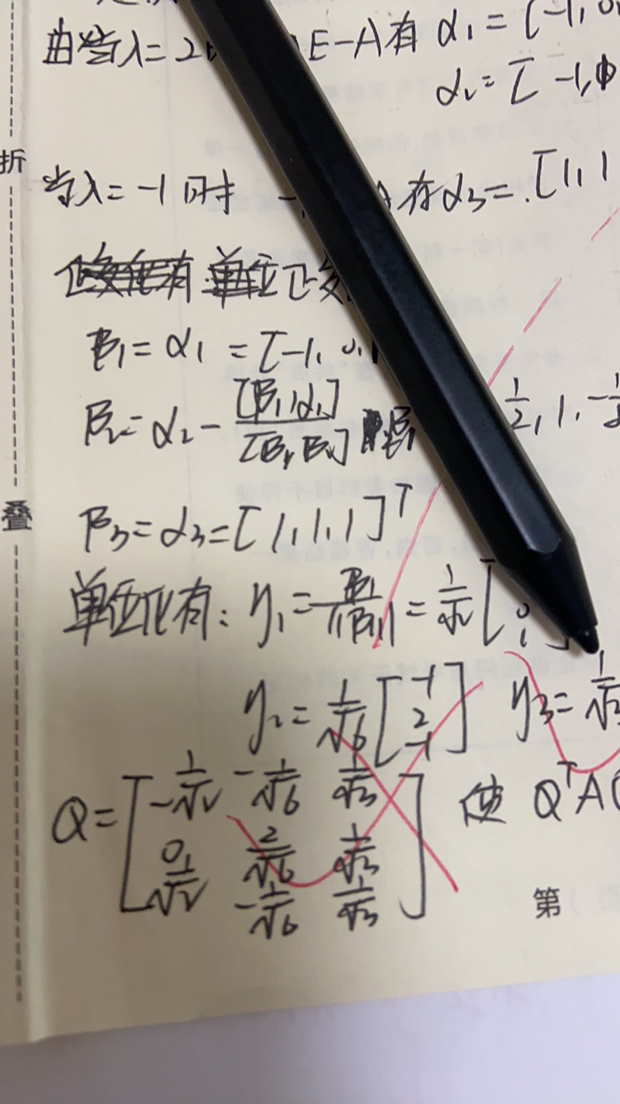 由当λ=2 E-A有 α₁=[-1,0
α₂=[-1,
折
当λ=-1时 - A有α₃=[1,1
单位正交
β₁=α₁=[-1,0,1
β₂=α₂-[β₁,α₁]/[β₁,β₁] β₁ 1/2,1,-1/2
叠
β₃=α₃=[1,1,1]ᵀ
单位化有: η₁=β₁/||β₁||=1/√2[ 0 1 ]
η₂=1/√6[-1 2 -1] η₃=1/√3
Q=[-1/√2 -1/√6 1/√3
0 2/√6 1/√3
1/√2 -1/√6 1/√3] 使 QᵀA
第